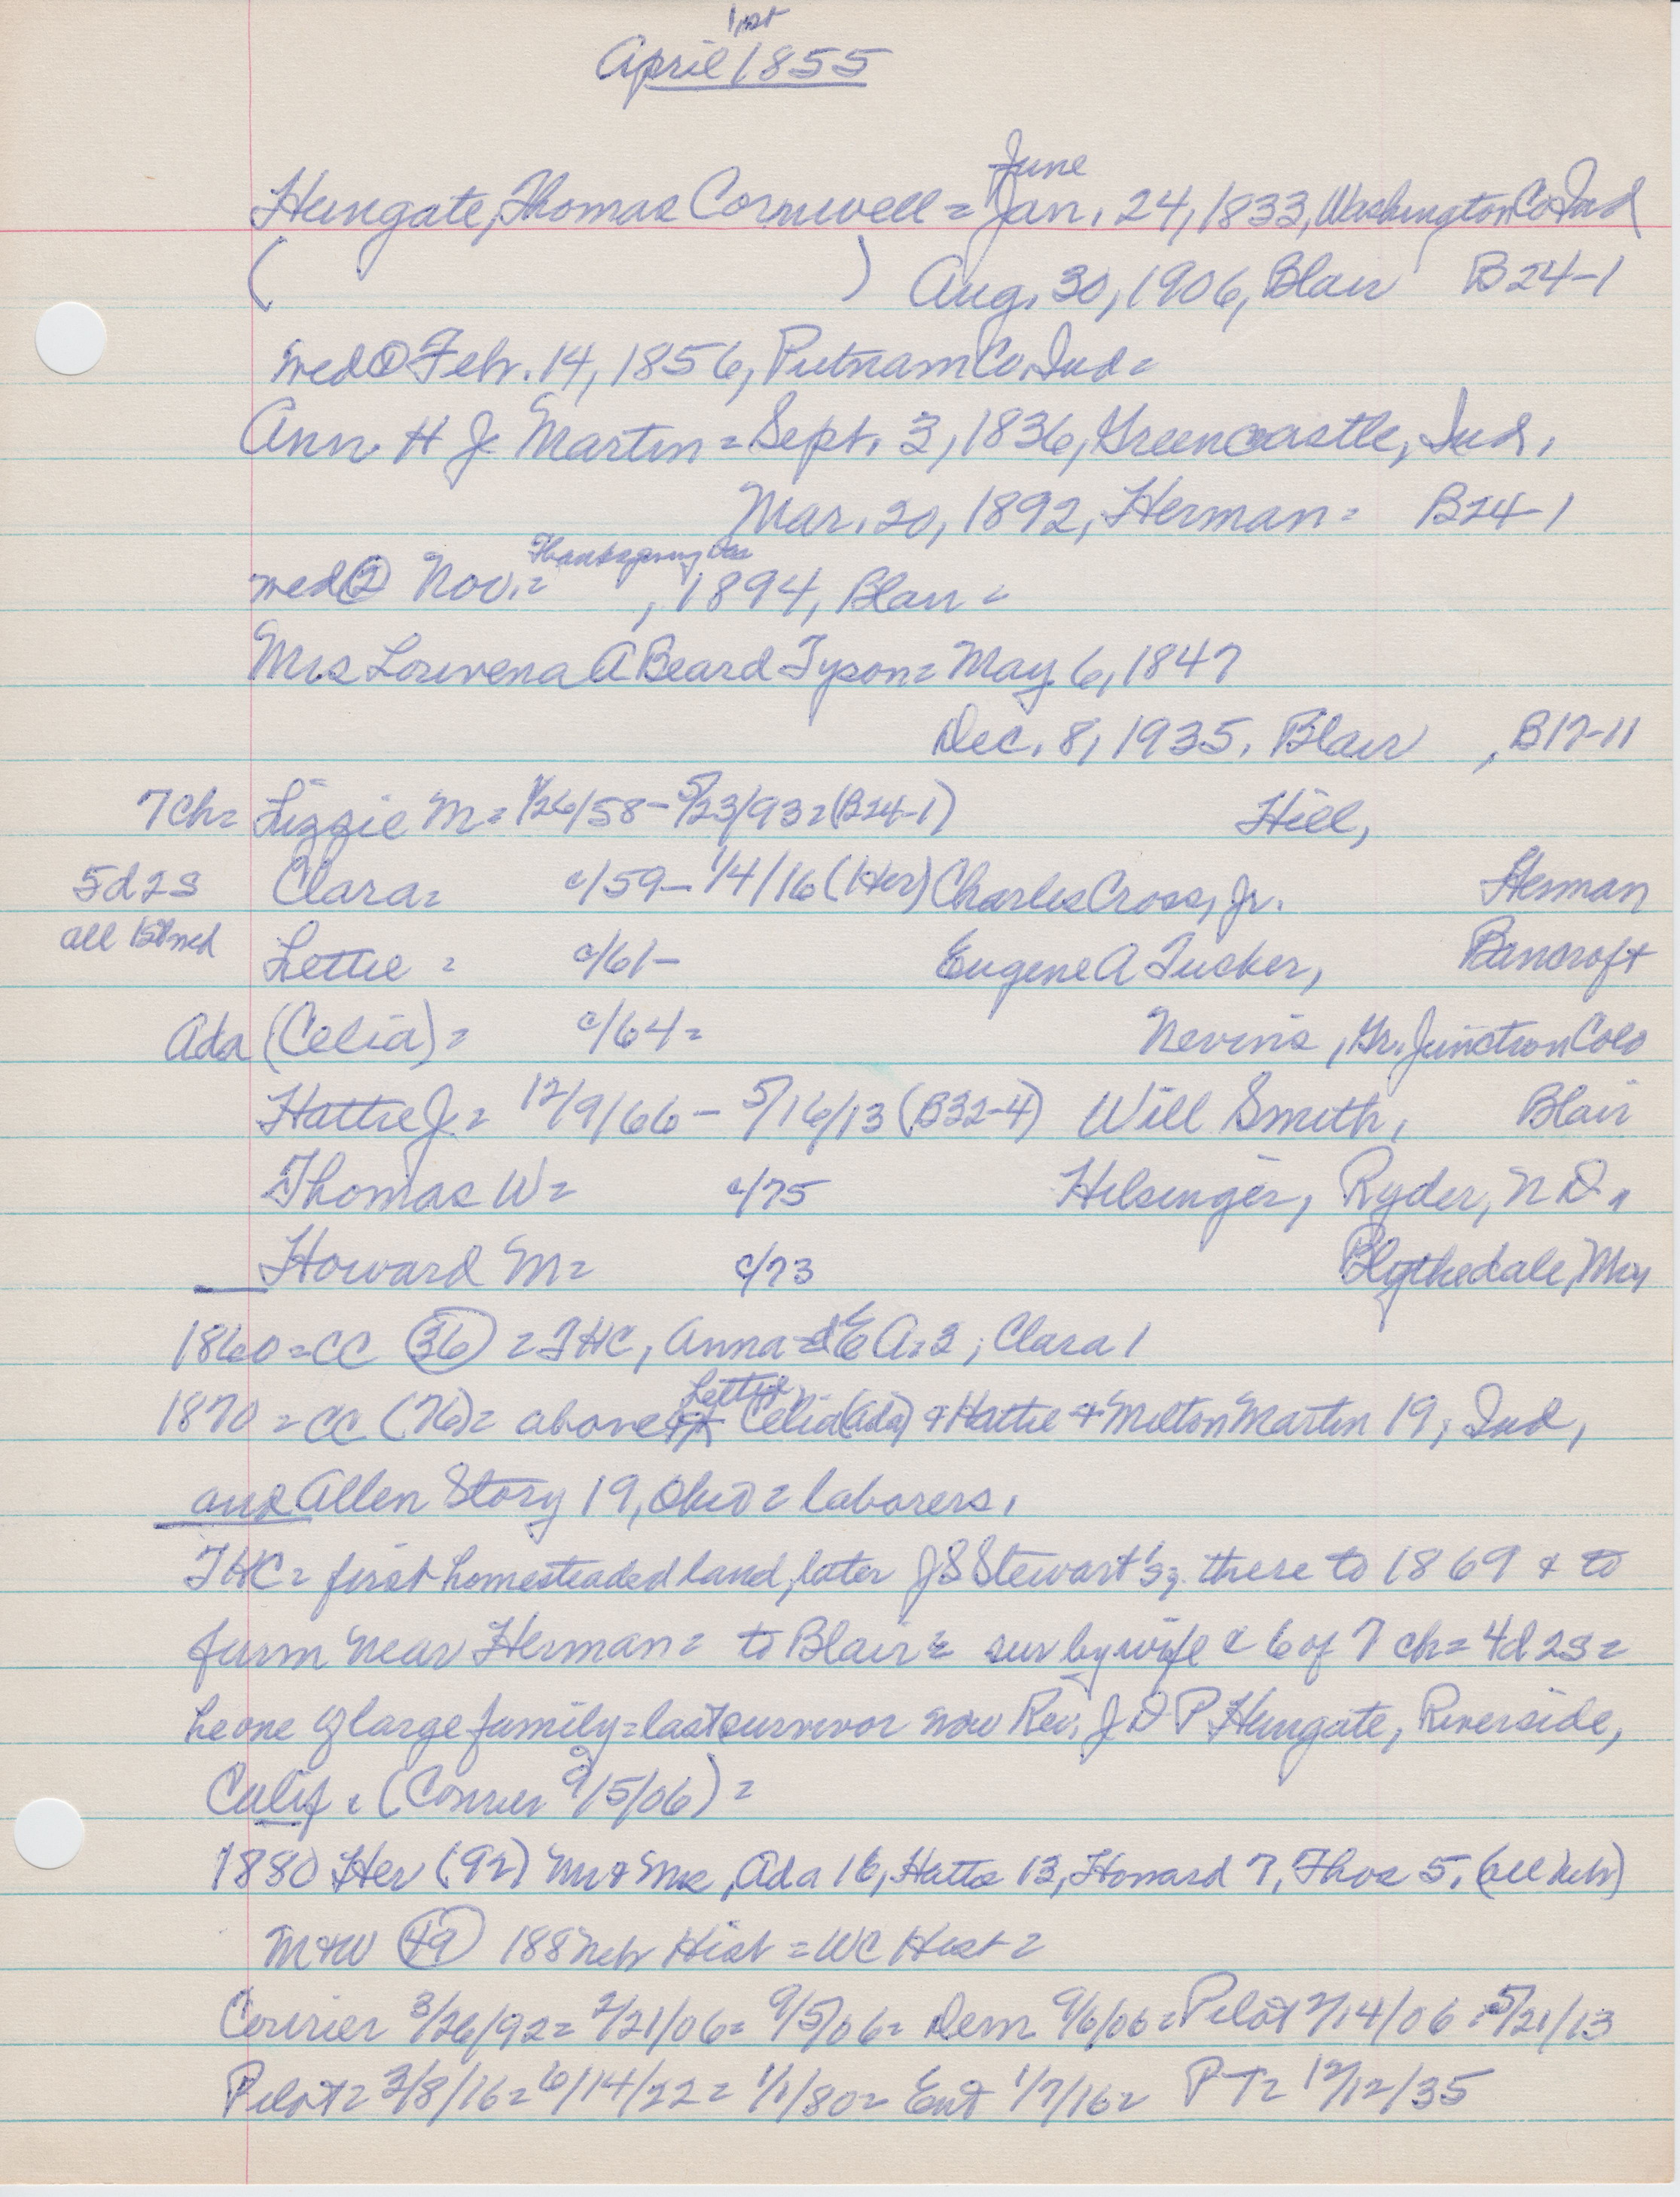 1st
April 1855
June
Hungate, Thomas Cornwell = Jan. 24, 1833, Washington Co Ind
( ) Aug. 30, 1906, Blair B24-1
wed ① Feb. 14, 1856, Putnam Co. Ind =
Ann H J Martin = Sept. 3, 1836, Greencastle, Ind.
Mar. 20, 1892, Herman = B24-1
Thanksgiving Day
wed ② Nov. = , 1894, Blair =
Mrs Louvena A Beard Tyson = May 6, 1847
Dec. 8, 1935, Blair , B17-11
7 ch = Lizzie M = 1/26/58 - 5/23/93 = (B24-1) Hill,
5d 2s Clara = c/59 - 1/4/16 (Her) Charles Cross, Jr. Herman
all 1st wed Lettie = c/61 - Eugene A Tucker, Bancroft
Ada (Celia) = c/64 = Nevins, Gr. Junction Colo
Hattie J = 12/9/66 - 5/16/13 (B32-4) Will Smith, Blair
Thomas W = c/75 Hilsinger, Ryder, N D,
Howard M = c/73 Blythedale, Mo
1860 = CC (36) = THC, Anna = E A = 2, Clara 1
Lettie
1870 = CC (76) = above + Celia (Ada) + Hattie + Milton Martin 19, Ind,
and Allen Story 19, Ohio = laborers.
THC = first homesteaded land, later J S Stewart's = there to 1869 & to
farm near Herman = to Blair = sur by wife & 6 of 7 ch = 4d 2s =
he one of large family = last survivor now Rev. J D P Hungate, Riverside,
Calif. (Courier 9/5/06) =
1880 Her (92) Mr & Mrs, Ada 16, Hatta 13, Howard 7, Thos 5, (all Neb)
M+W (49) 188 Neb Hist = WC Hist =
Courier 3/26/92 = 2/21/06 = 9/5/06 = Dem 9/6/06 = Pilot 2/14/06 = 5/21/13
Pilot = 3/8/16 = 6/14/22 = 1/1/80 = Ent 1/7/16 = P T = 12/12/35